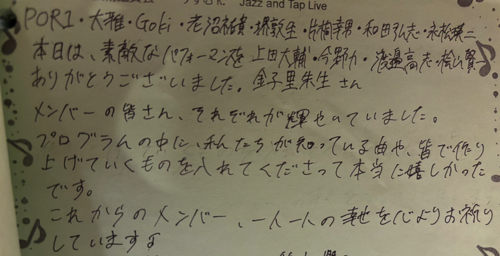 Jazz and Tap Live
PORI・大雅・Goki・老沼祐貴・堺敦生・片桐幸男・和田弘志・永松瑛二
本日は、素敵なパフォーマンスを 上田大輔・今野力・渡邊高志・桧山賢一
ありがとうございました。金子里朱生さん
メンバーの皆さん、それぞれが輝やいていました。
プログラムの中に、私たちが知っている曲や、皆で作り
上げていくものを入れてくださって本当に嬉しかった
です。
これからのメンバー、一人一人の幸せを心よりお祈り
しています♪